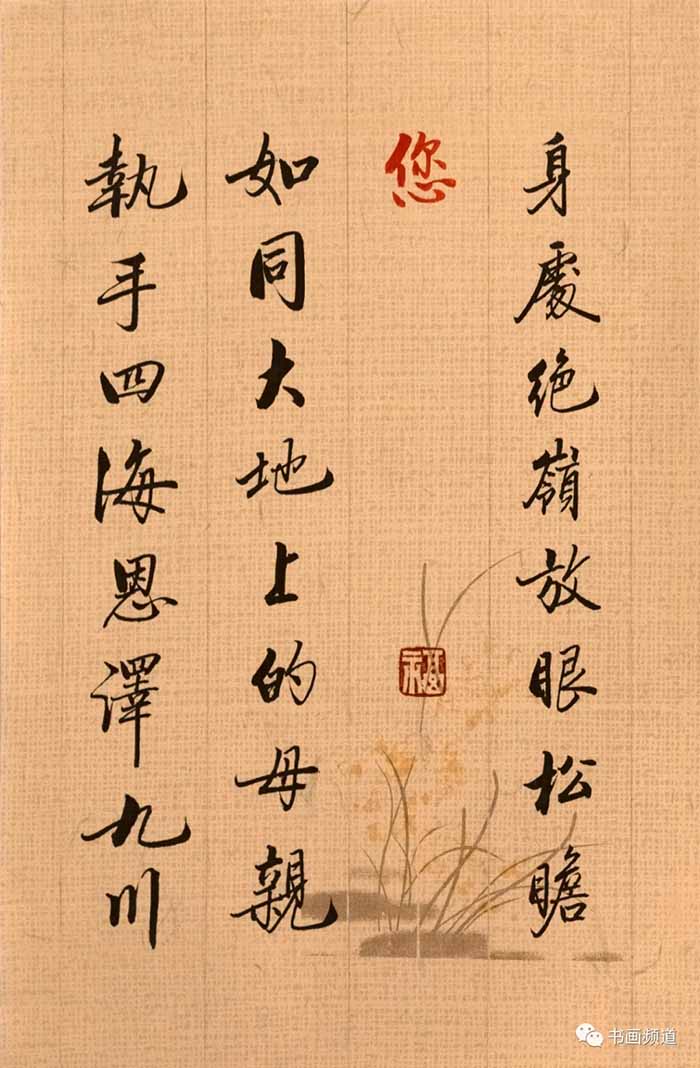 身處绝嶺放眼松瞻
您
如同大地上的母親
執手四海恩澤九川
书画频道